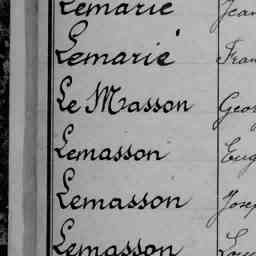 Lemarié Jean
Lemarié Fran
Le Masson Geor
Lemasson Eug
Lemasson Josep
Lemasson Lou